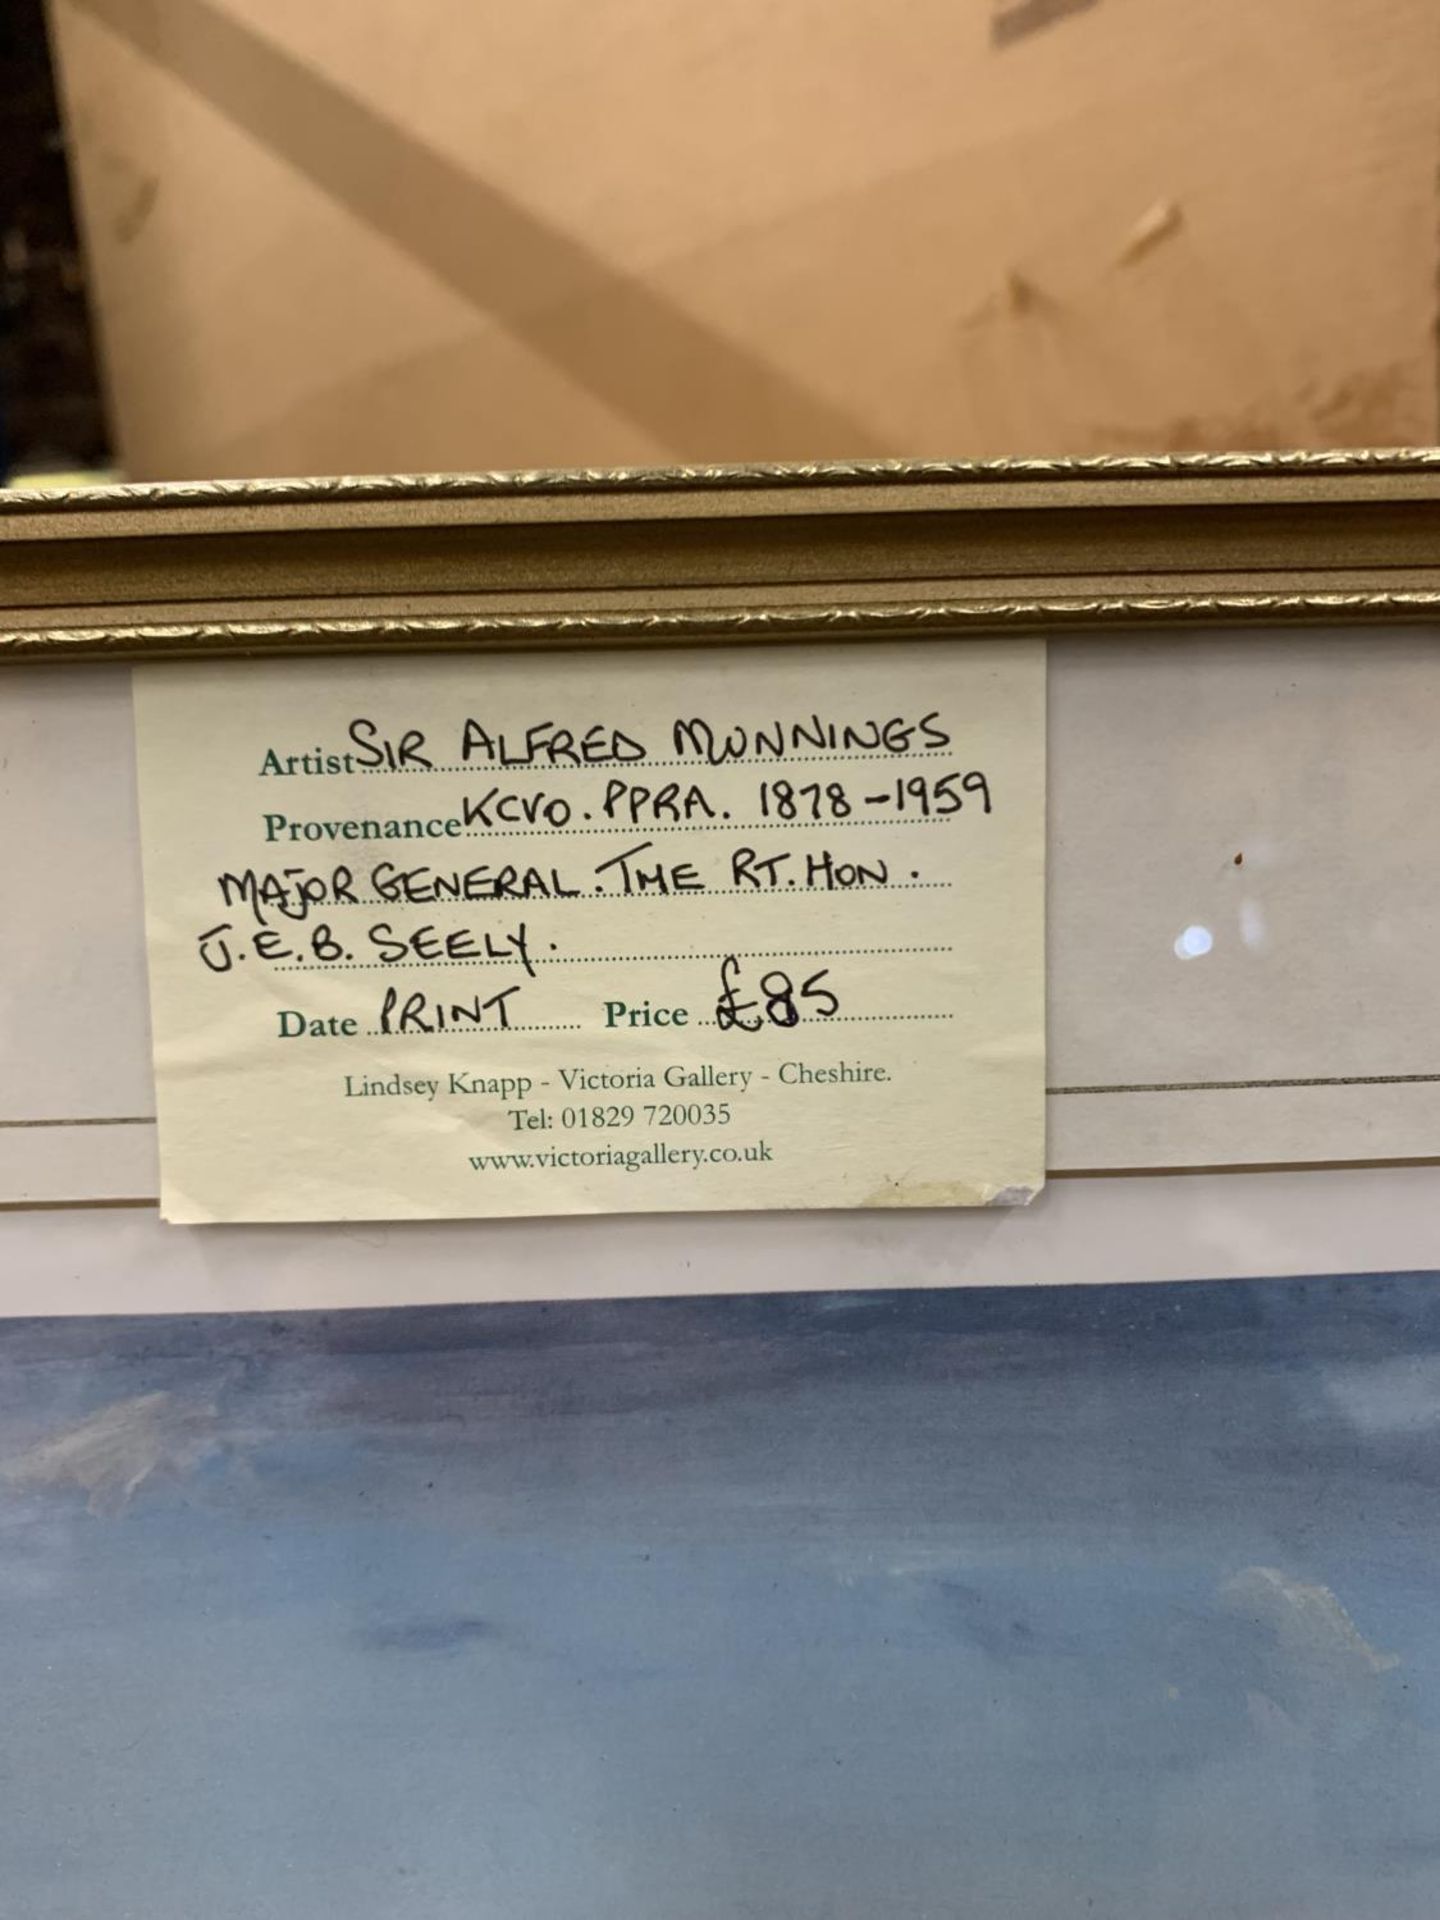 Artist SIR ALFRED MUNNINGS
Provenance KCVO. PPRA. 1878-1959
MAJOR GENERAL. THE RT. HON.
J.E.B. SEELY.
Date PRINT Price £85
Lindsey Knapp - Victoria Gallery - Cheshire.
Tel: 01829 720035
www.victoriagallery.co.uk